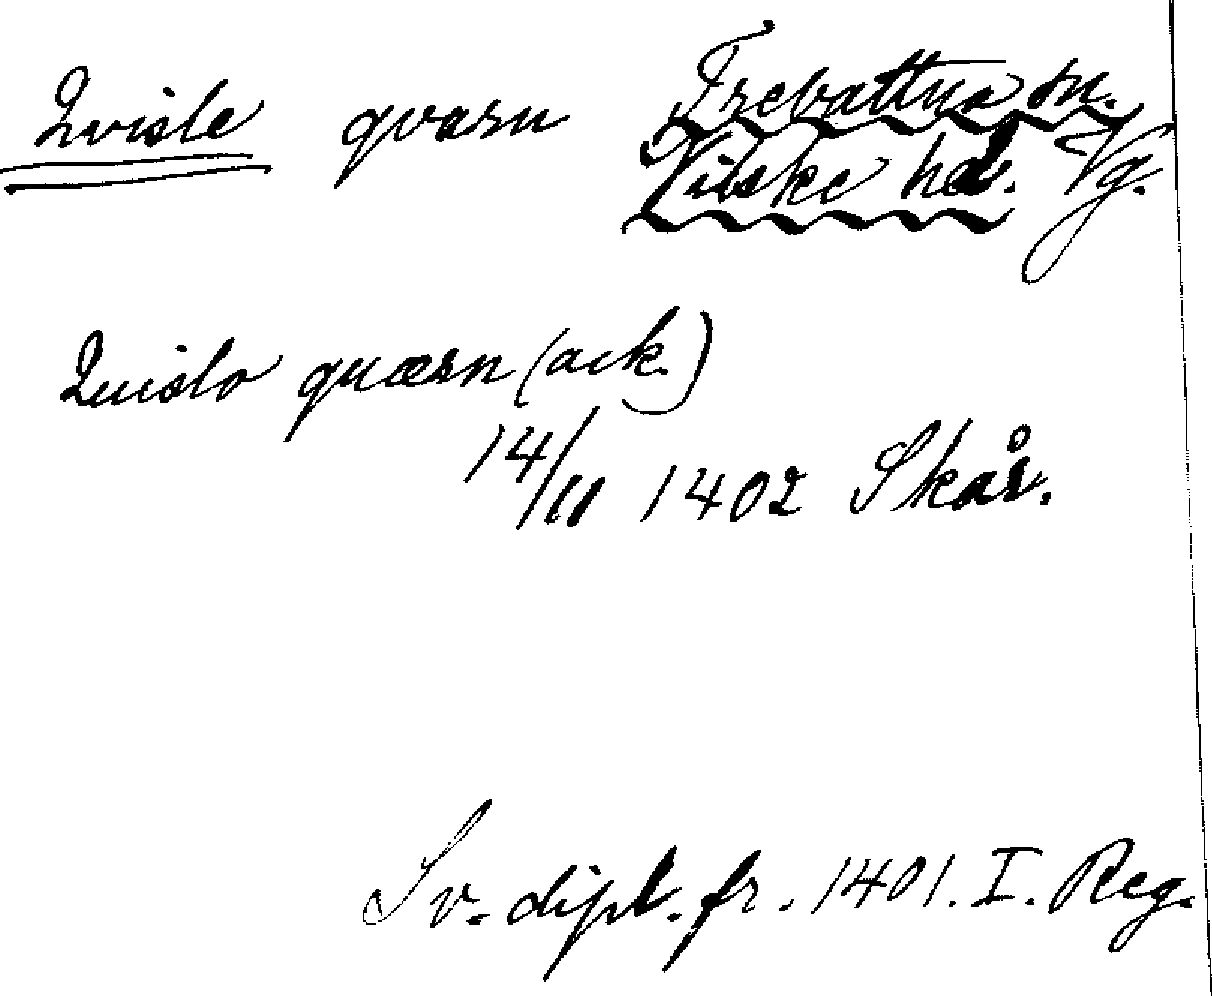 Qvisle qvarn Trevattna sn.
Vilske hd. Vg.
Quislo quærn (ack.)
14/11 1402 Skår.
Sv. dipl. fr. 1401. I. Reg.